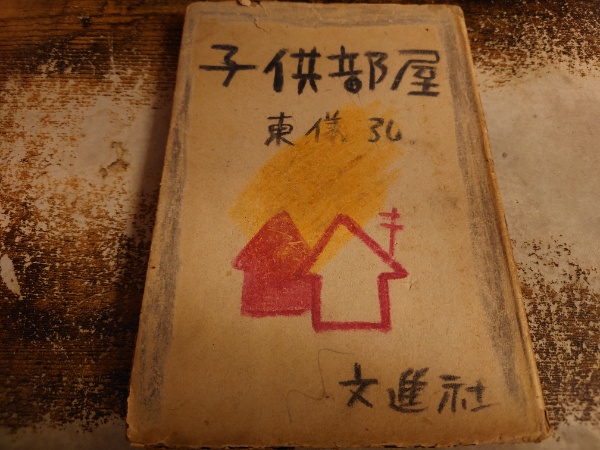 子供部屋
東儀 弘
文進社